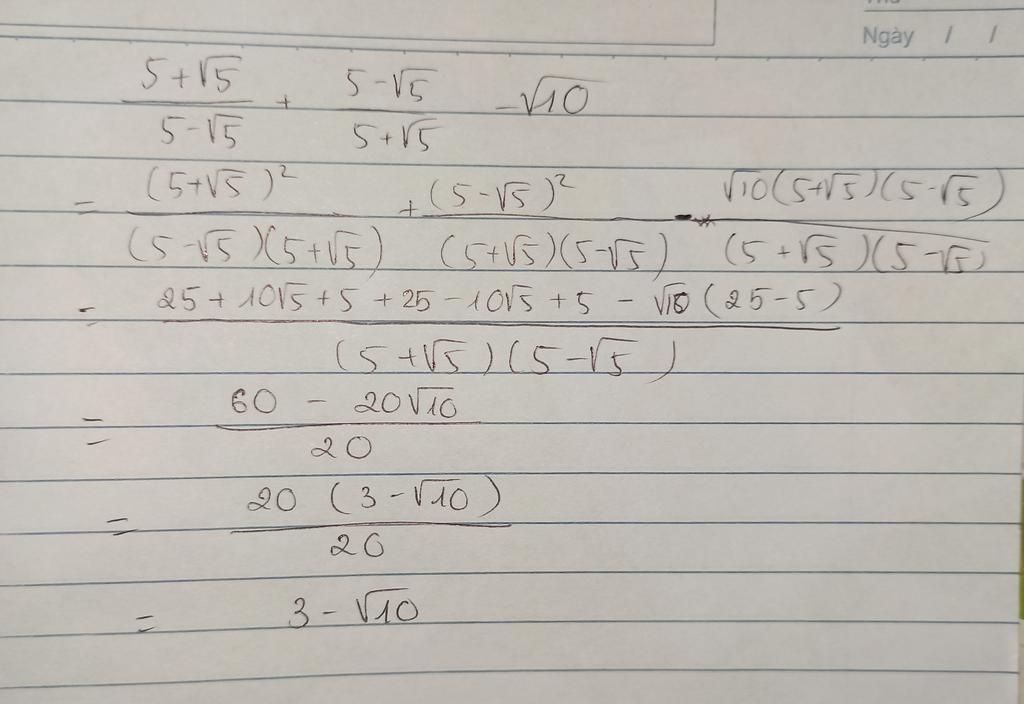 Ngày / /
5+√5 / 5-√5 + 5-√5 / 5+√5 - √10
= (5+√5)² / (5-√5)(5+√5) + (5-√5)² / (5+√5)(5-√5) - √10(5+√5)(5-√5) / (5+√5)(5-√5)
= 25 + 10√5 + 5 + 25 - 10√5 + 5 - √10(25-5) / (5+√5)(5-√5)
= 60 - 20√10 / 20
= 20(3-√10) / 20
= 3 - √10